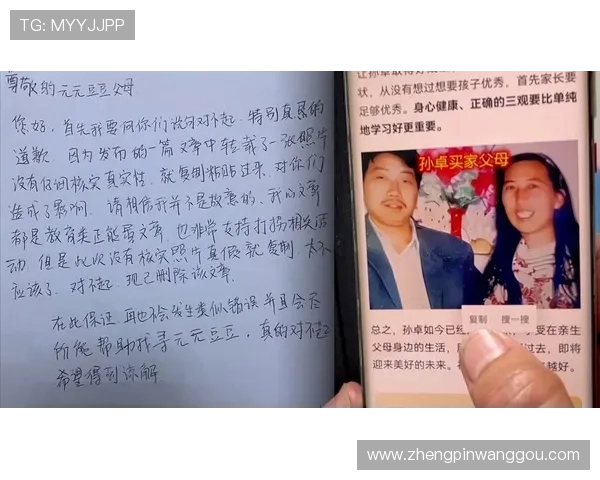 TG: MYYJJPP
尊敬的元元豆豆父母
您好，首先我要向你们说句对不起，特别真恳的
道歉，因为发布的一篇文章中转载了一张照片
没有仔细核实真实性，就复制粘贴过来，对你们
造成了影响，请相信我并不是故意的，我的文章
都是教育类正能量文章，也非常支持打拐相关活
动，但是此次没有核实照片真假就复制，太不
应该了，对不起，现已删除该文章。
在此保证，再也不会发生类似错误并且会尽
所能帮助找寻元元豆豆，真的对不起
希望得到谅解
让孙卓取得好成
状，从没有想过想要孩子优秀，首先家长要
足够优秀。身心健康、正确的三观要比单纯
地学习好更重要。
孙卓买家父母
复制 搜一搜
总之，孙卓如今已经 受在亲生
父母身边的生活， 过去，即将
迎来美好的未来。 越好。
www.zhengpinwanggou.com